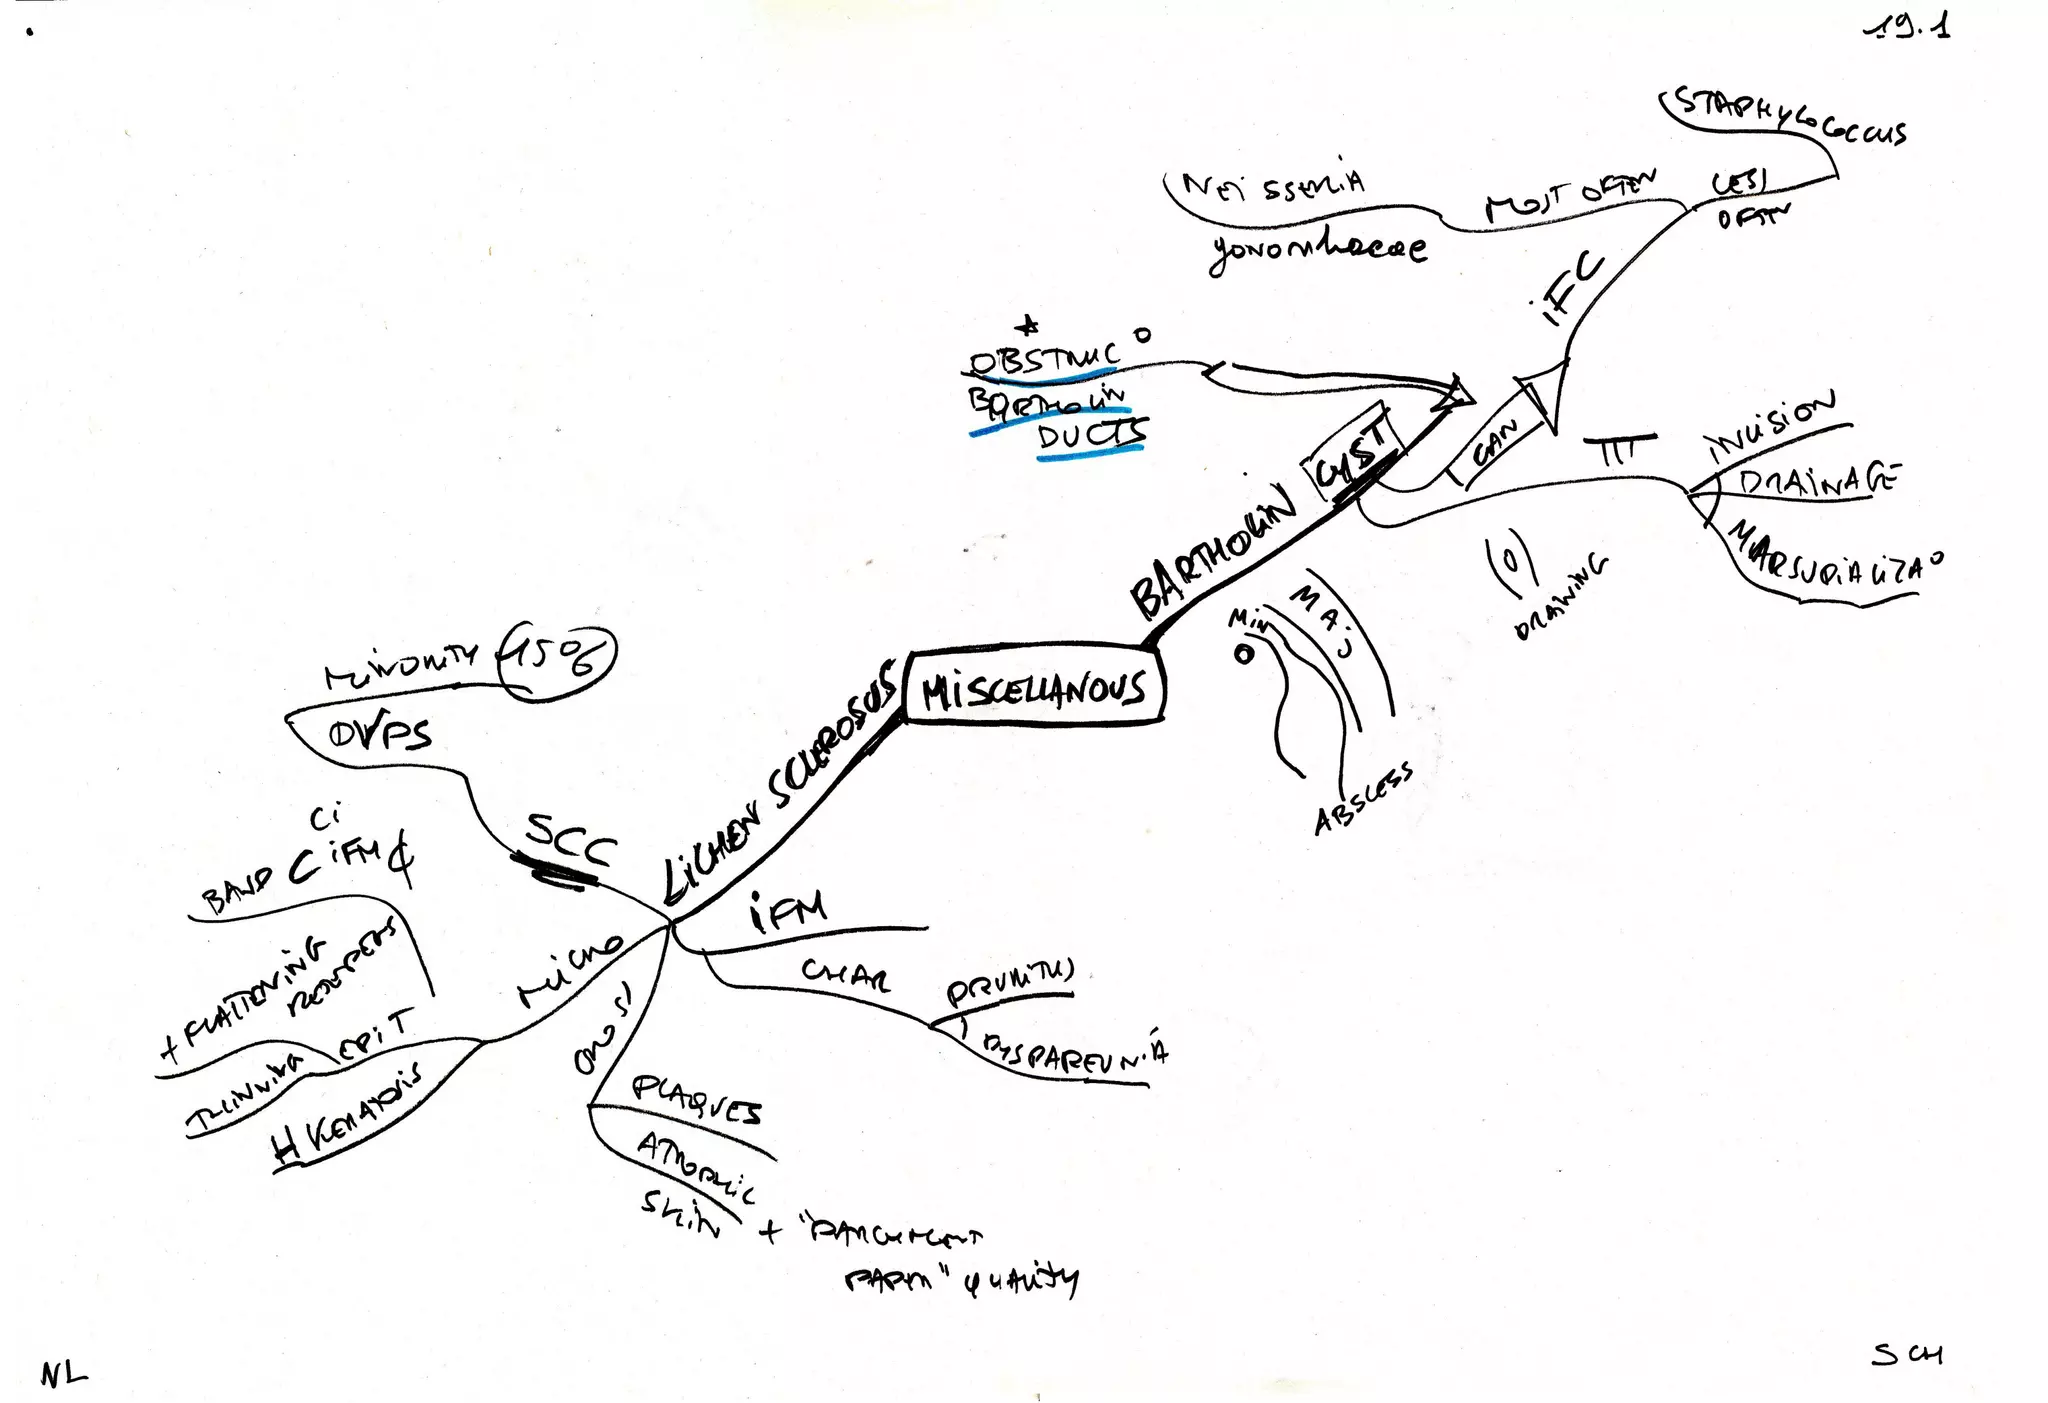 19.1
STAPHYLOCOCCUS
NEISSERIA
MOST OFTEN
LESS
OFTEN
gonorrhoeae
iFC
OBSTRUC°
BARTHOLIN
DUCTS
CYST
CAN
TTT
INCISION
DRAINAGE
MARSUPIALIZA°
BARTHOLIN
(O)
DRAWING
MIN
MAJ
ABSCESS
MISCELLANOUS
MINORITY
DVPS
LICHEN SCLEROSUS
SCC
Ci
BAND C iFM
iFM
CHAR
PRURITUS
DYSPAREUNIA
MICRO
+ FLATTENING
EPiT
THINNING
H KERATOSIS
PLAQUES
ATROPHIC
SKIN + "PARCHMENT
PAPER" QUALITY
NL
SCH